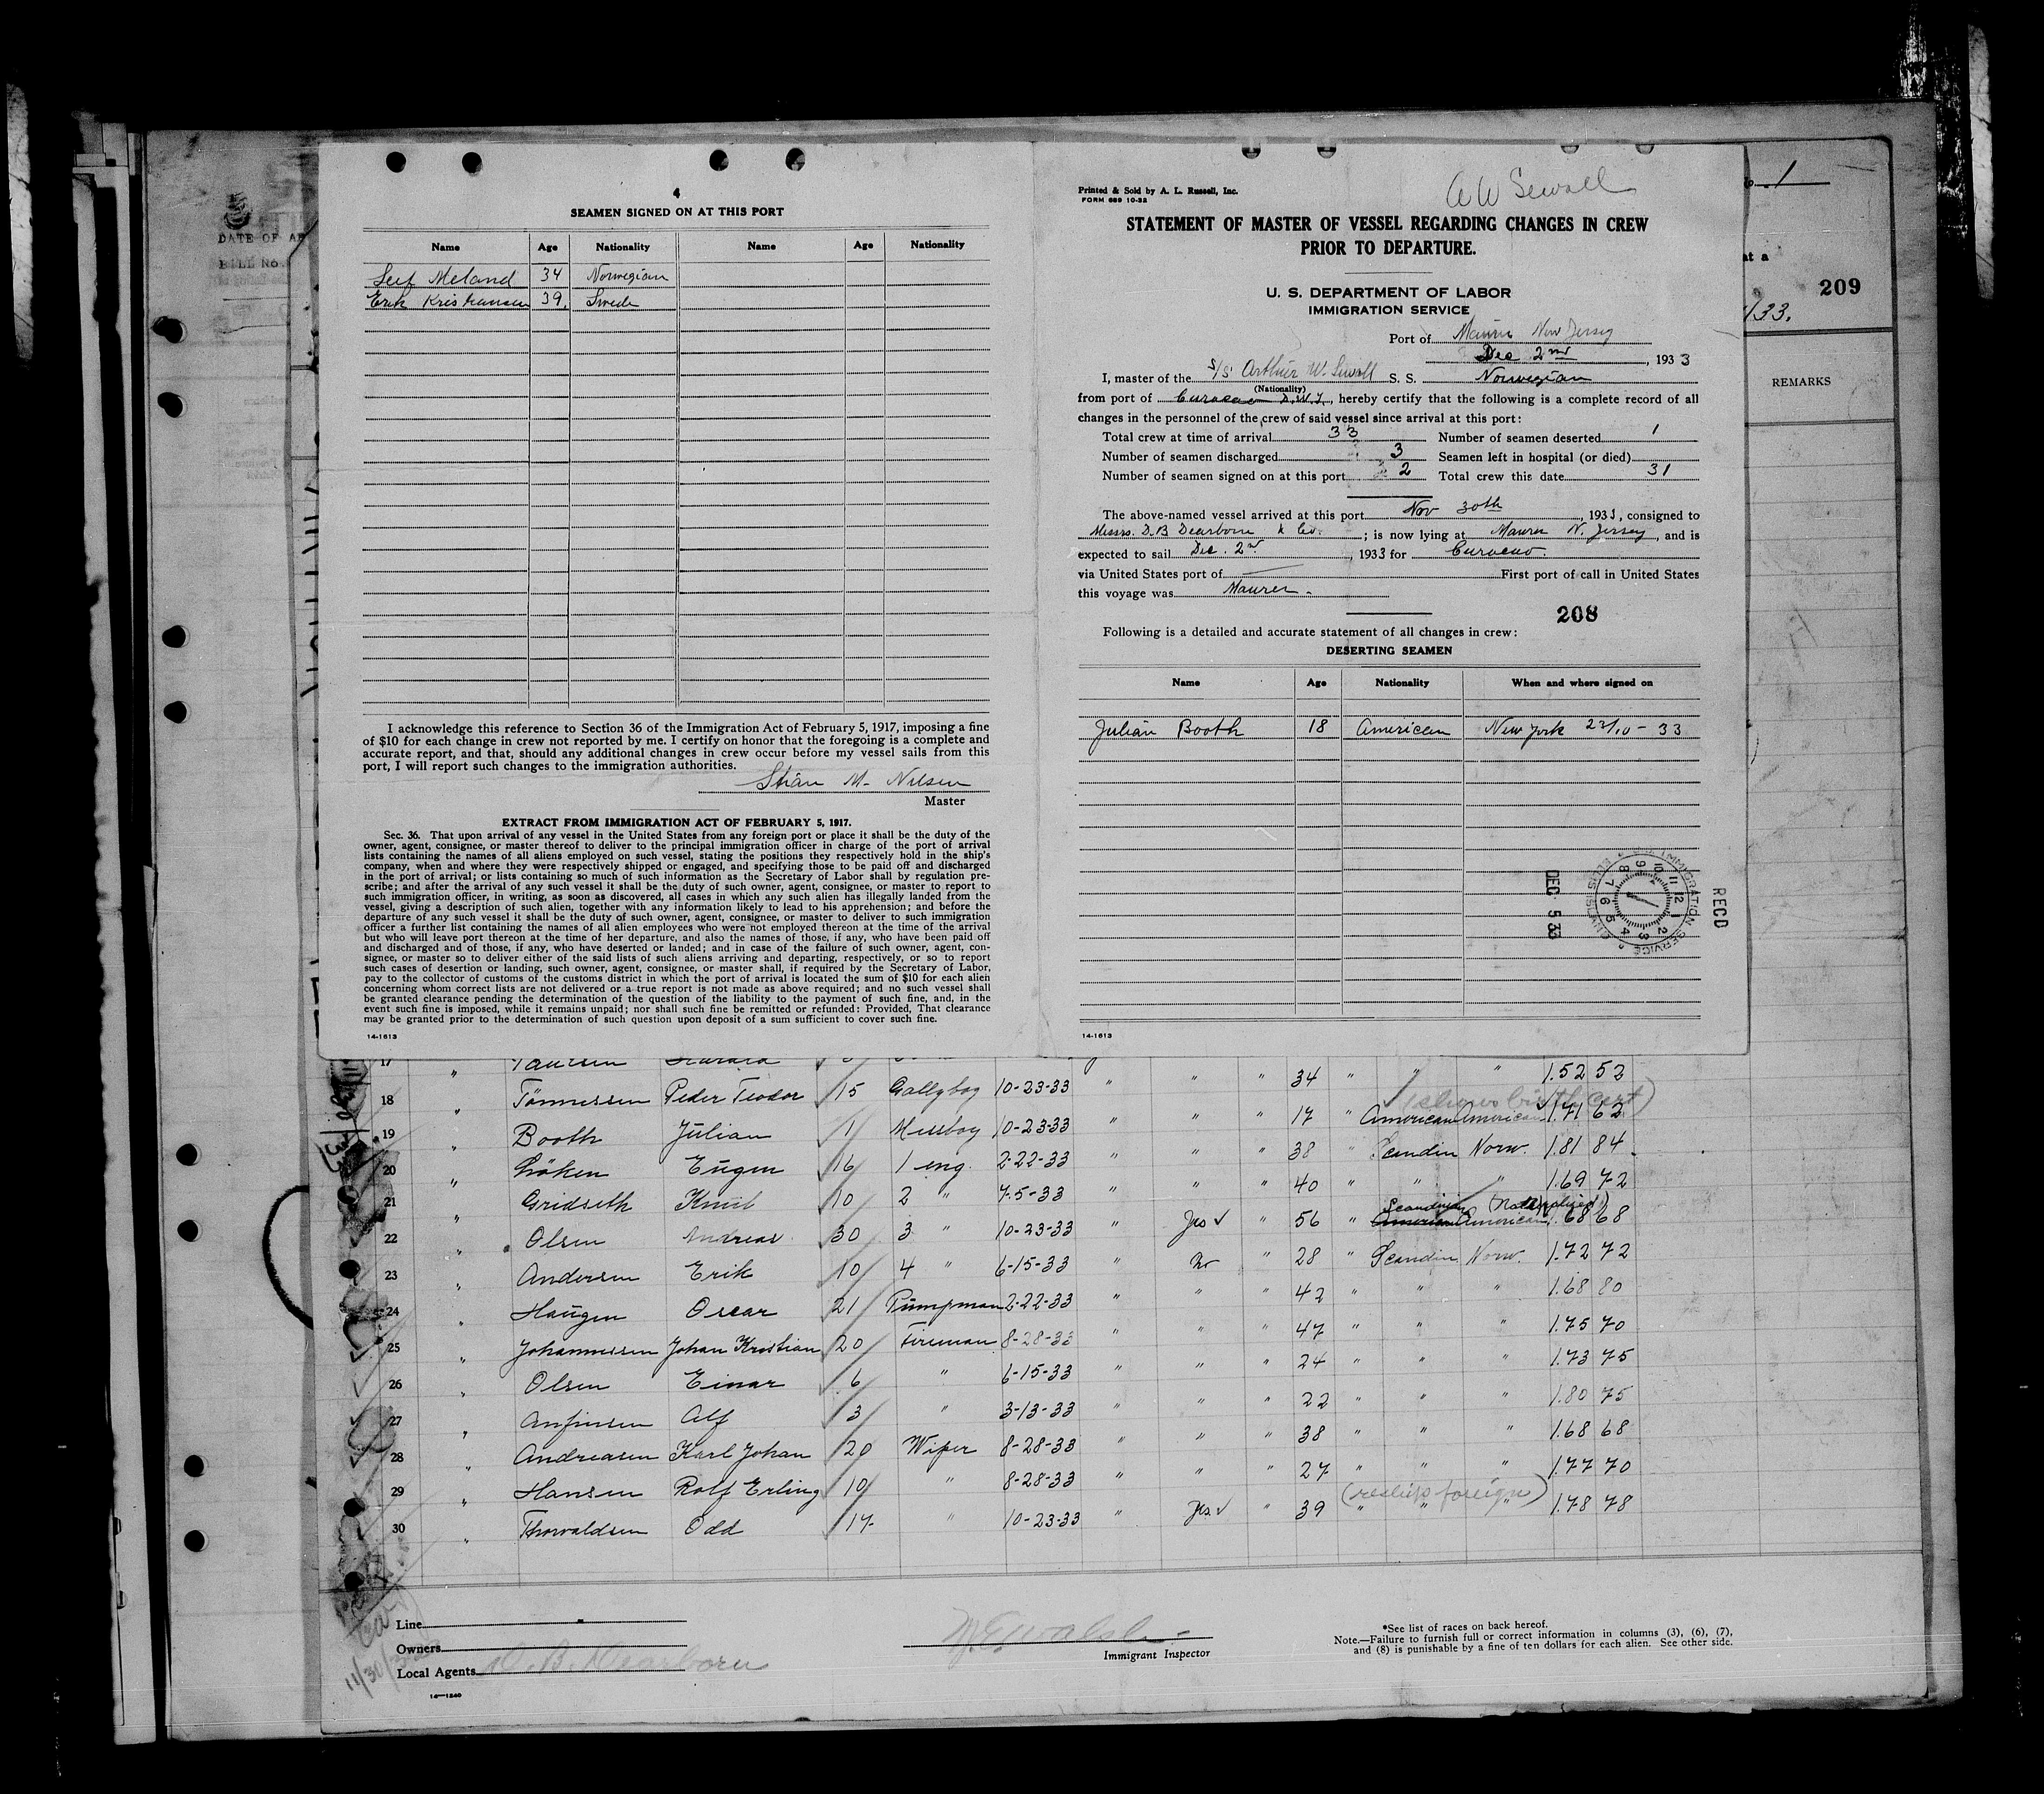 4
SEAMEN SIGNED ON AT THIS PORT
Name Age Nationality Name Age Nationality
Leif Meland 34 Norwegian
Erik Kristiansen 39. Swede
I acknowledge this reference to Section 36 of the Immigration Act of February 5, 1917, imposing a fine
of $10 for each change in crew not reported by me. I certify on honor that the foregoing is a complete and
accurate report, and that, should any additional changes in crew occur before my vessel sails from this
port, I will report such changes to the immigration authorities.
Stian M. Nilsen
Master
EXTRACT FROM IMMIGRATION ACT OF FEBRUARY 5, 1917.
Sec. 36. That upon arrival of any vessel in the United States from any foreign port or place it shall be the duty of the
owner, agent, consignee, or master thereof to deliver to the principal immigration officer in charge of the port of arrival
lists containing the names of all aliens employed on such vessel, stating the positions they respectively hold in the ship's
company, when and where they were respectively shipped or engaged, and specifying those to be paid off and discharged
in the port of arrival; or lists containing so much of such information as the Secretary of Labor shall by regulation pre-
scribe; and after the arrival of any such vessel it shall be the duty of such owner, agent, consignee, or master to report to
such immigration officer, in writing, as soon as discovered, all cases in which any such alien has illegally landed from the
vessel, giving a description of such alien, together with any information likely to lead to his apprehension; and before the
departure of any such vessel it shall be the duty of such owner, agent, consignee, or master to deliver to such immigration
officer a further list containing the names of all alien employees who were not employed thereon at the time of the arrival
but who will leave port thereon at the time of her departure, and also the names of those, if any, who have been paid off
and discharged and of those, if any, who have deserted or landed; and in case of the failure of such owner, agent, con-
signee, or master so to deliver either of the said lists of such aliens arriving and departing, respectively, or so to report
such cases of desertion or landing, such owner, agent, consignee, or master shall, if required by the Secretary of Labor,
pay to the collector of customs of the customs district in which the port of arrival is located the sum of $10 for each alien
concerning whom correct lists are not delivered or a true report is not made as above required; and no such vessel shall
be granted clearance pending the determination of the question of the liability to the payment of such fine, and, in the
event such fine is imposed, while it remains unpaid; nor shall such fine be remitted or refunded: Provided, That clearance
may be granted prior to the determination of such question upon deposit of a sum sufficient to cover such fine.
14-1613
Printed & Sold by A. L. Russell, Inc.
FORM 689 10-32
A W Sewall
STATEMENT OF MASTER OF VESSEL REGARDING CHANGES IN CREW
PRIOR TO DEPARTURE.
U. S. DEPARTMENT OF LABOR
IMMIGRATION SERVICE
Port of Maurer New Jersey
Dec 2nd, 1933
I, master of the S/S Arthur W. Sewall S. S. Norwegian
(Nationality)
from port of Curacao D.W.I., hereby certify that the following is a complete record of all
changes in the personnel of the crew of said vessel since arrival at this port:
Total crew at time of arrival 33 Number of seamen deserted 1
Number of seamen discharged 3 Seamen left in hospital (or died)
Number of seamen signed on at this port 2 Total crew this date 31
The above-named vessel arrived at this port Nov 30th, 1933, consigned to
Messrs. D. B Dearborn & Co. ; is now lying at Maurer N. Jersey, and is
expected to sail Dec. 2nd, 1933 for Curacao.
via United States port of First port of call in United States
this voyage was Maurer.
208
Following is a detailed and accurate statement of all changes in crew:
DESERTING SEAMEN
Name Age Nationality When and where signed on
Julian Booth 18 American New York 23/10-33
RECD
IMMIGRATION SERVICE
DEC 5 33
14-1613
1
209
/33.
REMARKS
DATE OF AR
BILL No.
17 "
18 " Tönnessen Peder Teodor 15 Gallyboy 10-23-33 " " " 34 " " " 1.52 52
(shows birth cert)
19 " Booth Julian 1 Messboy 10-23-33 " " " 17 " American American 1.71 62
20 " Löken Eugen 16 1 eng. 2-22-33 " " " 38 " Scandin Norw. 1.81 84
21 " Gridseth Knut 10 2 " 7-5-33 " " " 40 " " " 1.69 72
Scandinav (Naturalized)
22 " Olsen Andreas 30 3 " 10-23-33 " Yes " 56 " American American 1.68 68
23 " Andersen Erik 10 4 " 6-15-33 " No " 28 " Scandin Norw. 1.72 72
24 " Haugen Oscar 21 Pumpman 2-22-33 " " " 42 " " " 1.68 80
25 " Johannesen Johan Kristian 20 Fireman 8-28-33 " " " 47 " " " 1.75 70
26 " Olsen Einar 6 " 6-15-33 " " " 24 " " " 1.73 75
27 " Anfinsen Alf 3 " 3-13-33 " " " 22 " " " 1.80 75
28 " Andreasen Karl Johan 20 Wiper 8-28-33 " " " 38 " " " 1.68 68
29 " Hansen Rolf Erling 10 " 8-28-33 " " " 27 " " " 1.77 70
(reships foreign)
30 " Thorvaldsen Odd 17 " 10-23-33 " Yes " 39 " " " 1.78 78
Line
Owners
Local Agents D. B. Dearborn
14-1240
Immigrant Inspector
*See list of races on back hereof.
Note.—Failure to furnish full or correct information in columns (3), (6), (7),
and (8) is punishable by a fine of ten dollars for each alien. See other side.